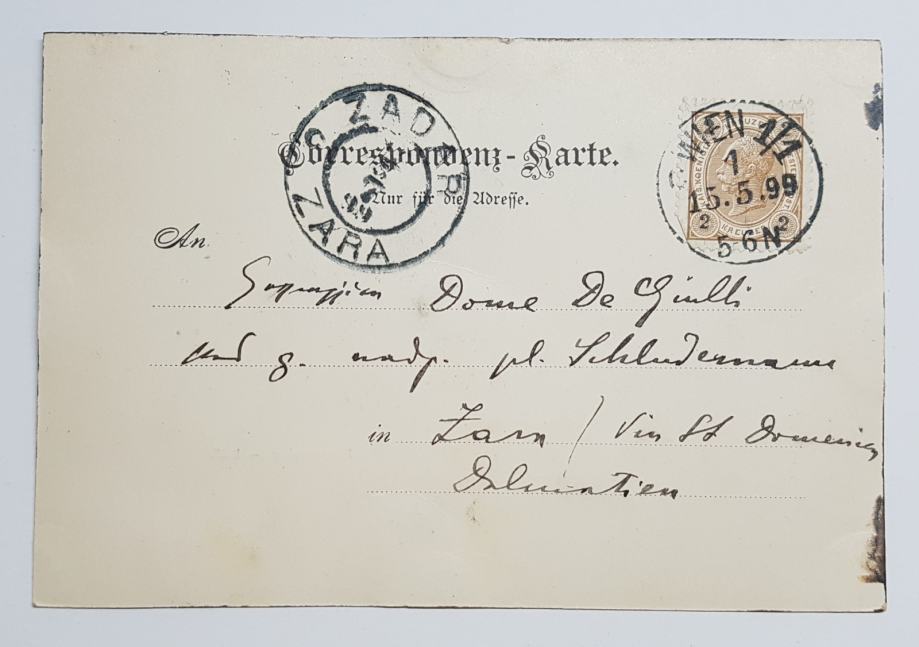 Correspondenz-Karte.
Nur für die Adresse.
ZADAR
ZARA
WIEN 1/1
1
15.5.99
5-6N
2 KREUZER 2
An
Dome De Giulli
kod g. nadp. pl. Schludermann
in Zara / Via St Domenica
Dalmatien